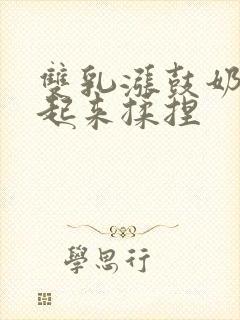 雙乳漲鼓奶
起來揉捏
學思行